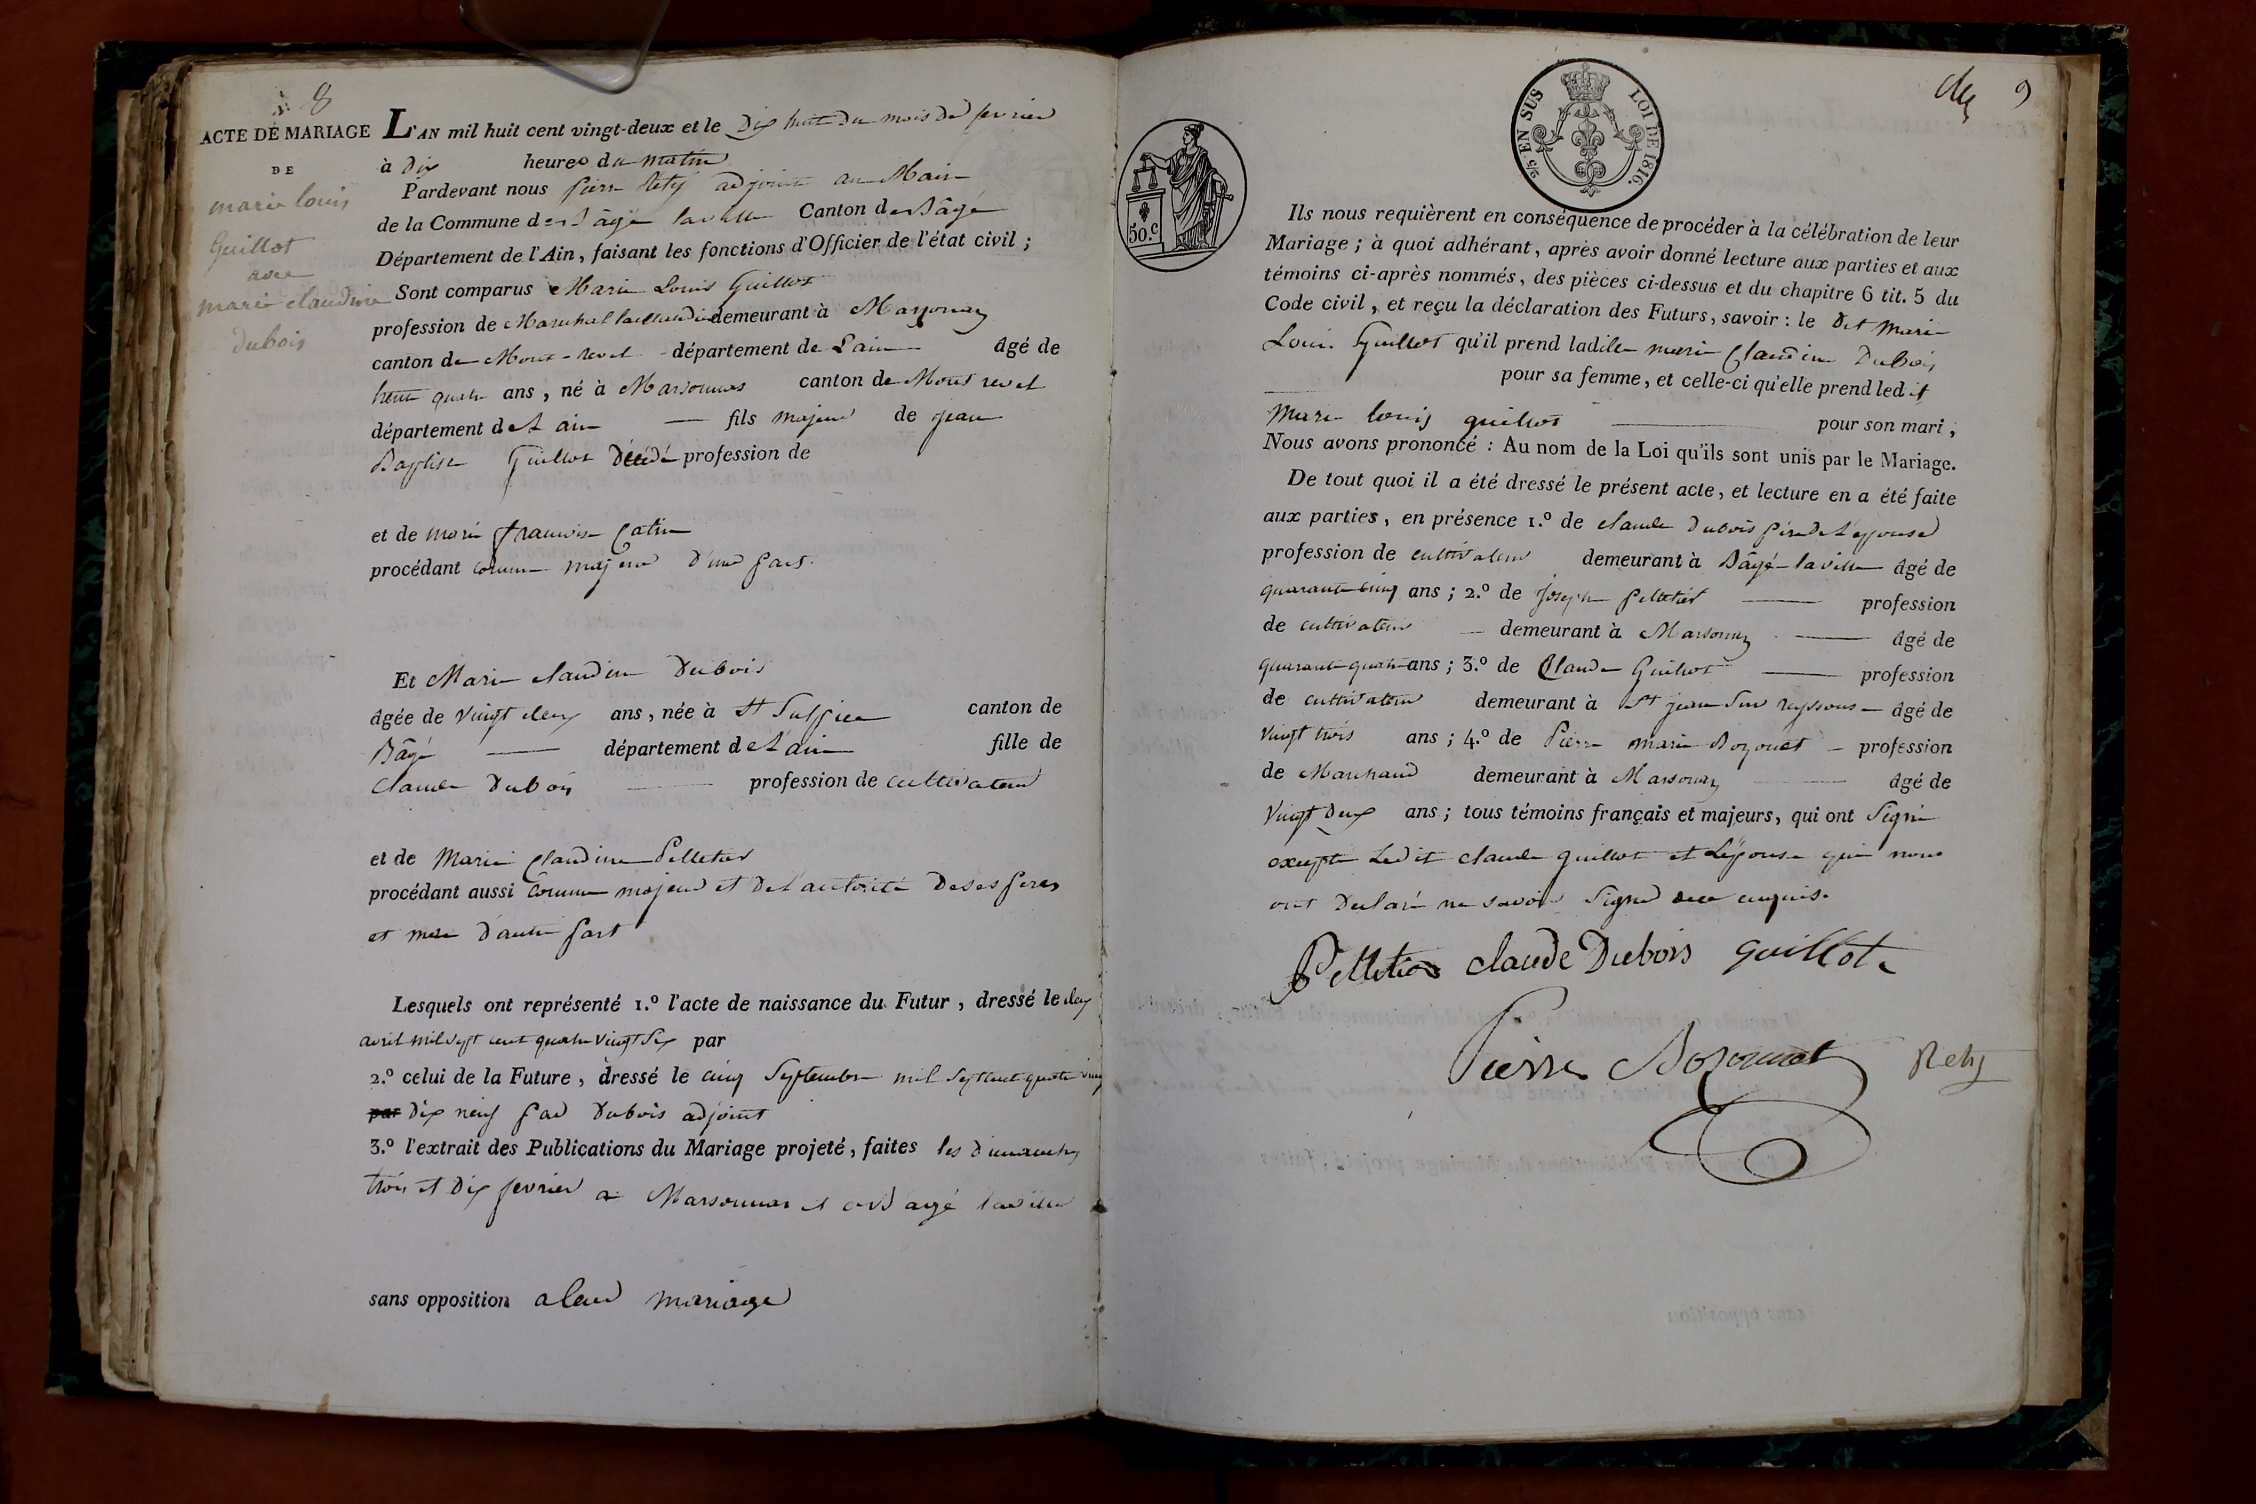 n.° 8
ACTE DE MARIAGE
DE
marie louis
Guillot
avec
marie claudine
dubois
L'AN mil huit cent vingt-deux et le Dix huit du mois de fevrier
à Dix heures du matin
Pardevant nous pierre Rety adjoint au Maire
de la Commune de Bâgé laville Canton de Bâgé
Département de l'Ain, faisant les fonctions d'Officier de l'état civil ;
Sont comparus Marie Louis Guillot
profession de Marechal taillandier demeurant à Marsonnay
canton de Mont-revel département de Lain âgé de
trente quatre ans, né à Marsonnas canton de Mont revel
département de L'ain fils majeur de jean
Baptiste Guillot Décédé profession de
et de marie francoise Catin
procédant comme majeur d'une part.
Et Marie claudine Dubois
âgée de vingt deux ans, née à St Sulpice canton de
Bâgé département de L'ain fille de
claude Dubois profession de cultivateur
et de Marie Claudine Pelletier
procédant aussi comme majeur et de L'autorité de ses peres
et mere d'autre part
Lesquels ont représenté 1.° l'acte de naissance du Futur, dressé le deux
avril mil sept cent quatre vingt six par
2.° celui de la Future, dressé le cinq Septembre mil sept cent quatre vingt
par dix neuf par Dubois adjoint
3.° l'extrait des Publications du Mariage projeté, faites les dimanches
trois et dix fevrier a Marsonnas et a Bagé laville
sans opposition a leur mariage
9
2/5 EN SUS LOI DE 1816.
50.c
Ils nous requièrent en conséquence de procéder à la célébration de leur
Mariage ; à quoi adhérant, après avoir donné lecture aux parties et aux
témoins ci-après nommés, des pièces ci-dessus et du chapitre 6 tit. 5 du
Code civil, et reçu la déclaration des Futurs, savoir : le dit marie
Louis Guillot qu'il prend ladite marie Claudine Dubois
pour sa femme, et celle-ci qu'elle prend ledit
marie louis guillot pour son mari,
Nous avons prononcé : Au nom de la Loi qu'ils sont unis par le Mariage.
De tout quoi il a été dressé le présent acte, et lecture en a été faite
aux parties, en présence 1.° de claude dubois père de L'epouse
profession de cultivateur demeurant à Bâgé-laville âgé de
quarante cinq ans ; 2.° de Joseph pelletier profession
de cultivateur demeurant à Marsonnay âgé de
quarante quatre ans ; 3.° de Claude Guillot profession
de cultivateur demeurant à St jean Sur reyssouse âgé de
vingt trois ans ; 4.° de Pierre marie Bozonnet profession
de Marchand demeurant à Marsonnay âgé de
vingt deux ans ; tous témoins français et majeurs, qui ont Signé
excepté Ledit claude guillot et L'épouse qui nous
ont declaré ne savoir Signer de ce enquis.
Pelletier claude Dubois Guillot
Pierre Bozonnet Rety